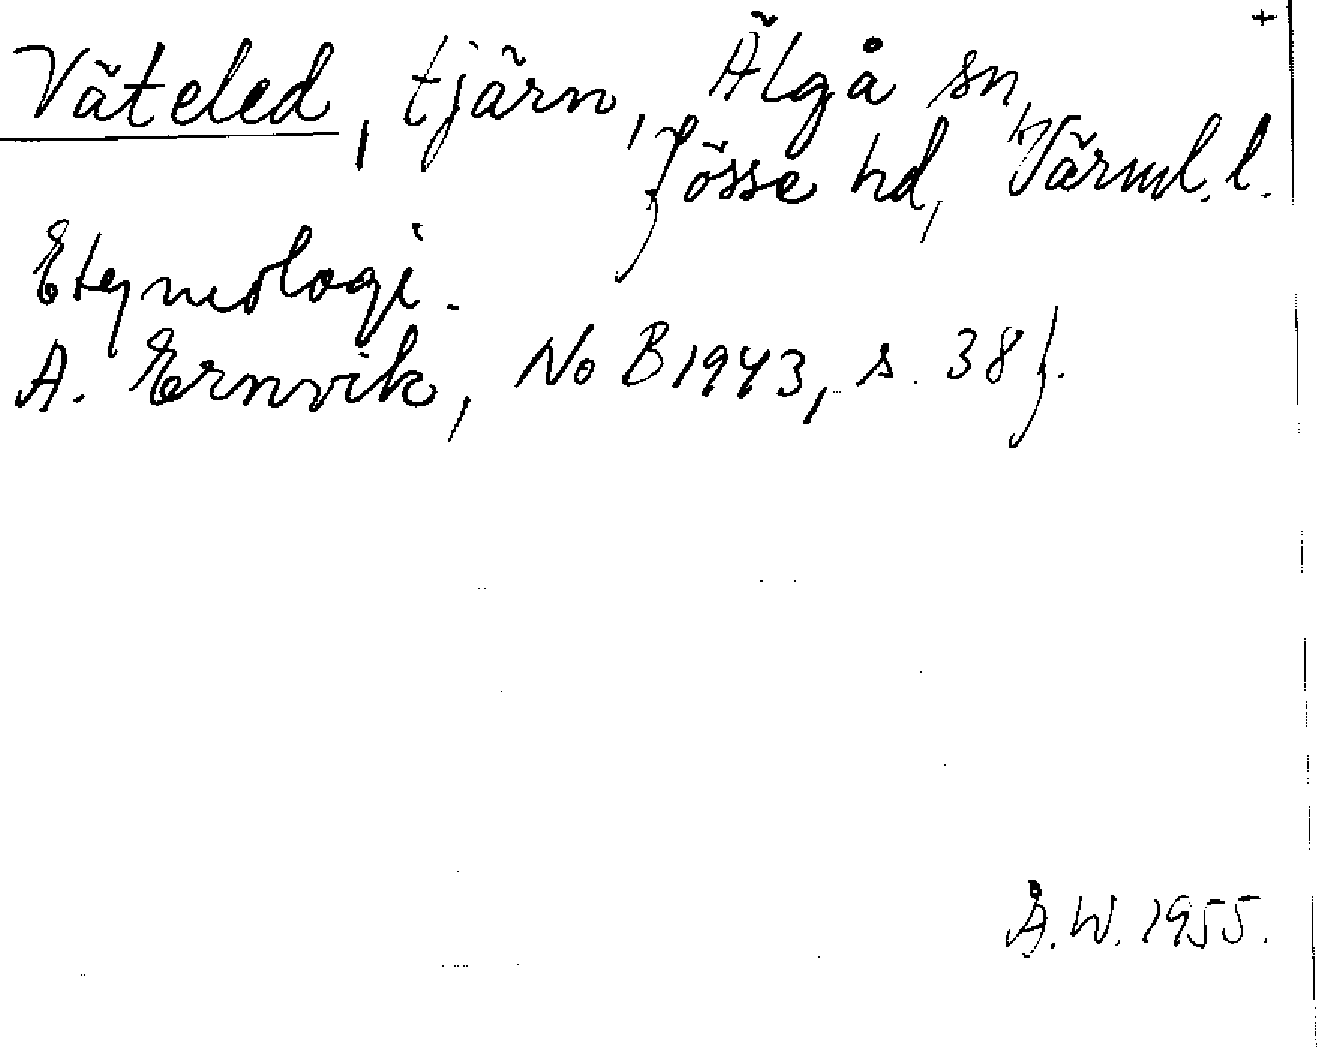 +
Väteled, tjärn, Älgå sn,
Jösse hd, Värml. l.
Etymologi.
A. Ernvik, NoB 1943, s. 38f.
Å.W. 1955.